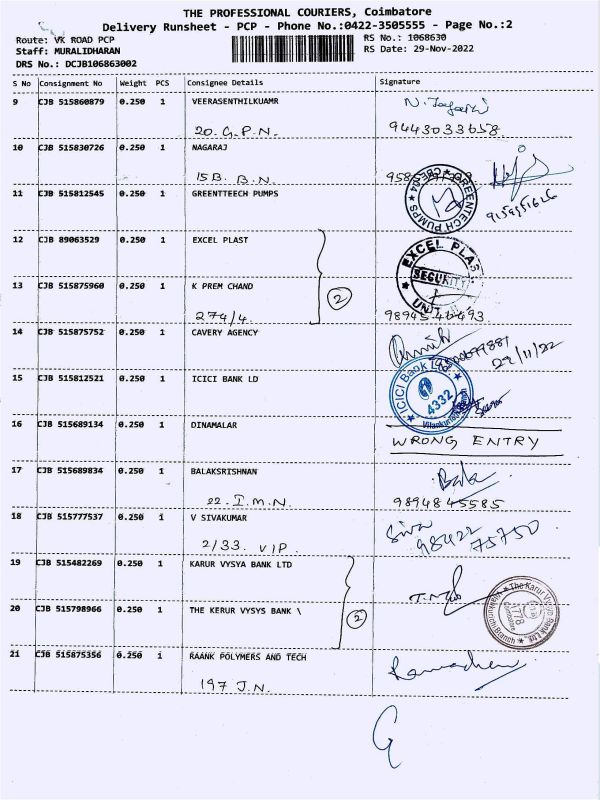 THE PROFESSIONAL COURIERS, Coimbatore
Delivery Runsheet - PCP - Phone No.:0422-3505555 - Page No.:2
Route: VK ROAD PCP
Staff: MURALIDHARAN
DRS No.: DCJB106863002
RS No.: 1068630
RS Date: 29-Nov-2022
S No Consignment No Weight PCS Consignee Details Signature
9 CJB 515860879 0.250 1 VEERASENTHILKUAMR
20. G.P.N. 9443033658
10 CJB 515830726 0.250 1 NAGARAJ
15B. B.N.
11 CJB 515812545 0.250 1 GREENTTEECH PUMPS
GREENTECH PUMPS
9159951626
12 CJB 89063529 0.250 1 EXCEL PLAST
EXCEL PLAS
SECURITY
UNIT
13 CJB 515875960 0.250 1 K PREM CHAND
2
274/4.
14 CJB 515875752 0.250 1 CAVERY AGENCY
29/11/22
15 CJB 515812521 0.250 1 ICICI BANK LD
ICICI Bank Ltd.
4332
16 CJB 515689134 0.250 1 DINAMALAR
WRONG ENTRY
17 CJB 515689834 0.250 1 BALAKSRISHNAN Bala
22. I.M.N. 9894845585
18 CJB 515777537 0.250 1 V SIVAKUMAR Siva
2/33. VIP. 98422 75750
19 CJB 515482269 0.250 1 KARUR VYSYA BANK LTD
20 CJB 515798966 0.250 1 THE KERUR VYSYS BANK \
2
The Karur Vysya Bank Ltd.
1778
Coimbatore
21 CJB 515875356 0.250 1 RAANK POLYMERS AND TECH
197 J.N.